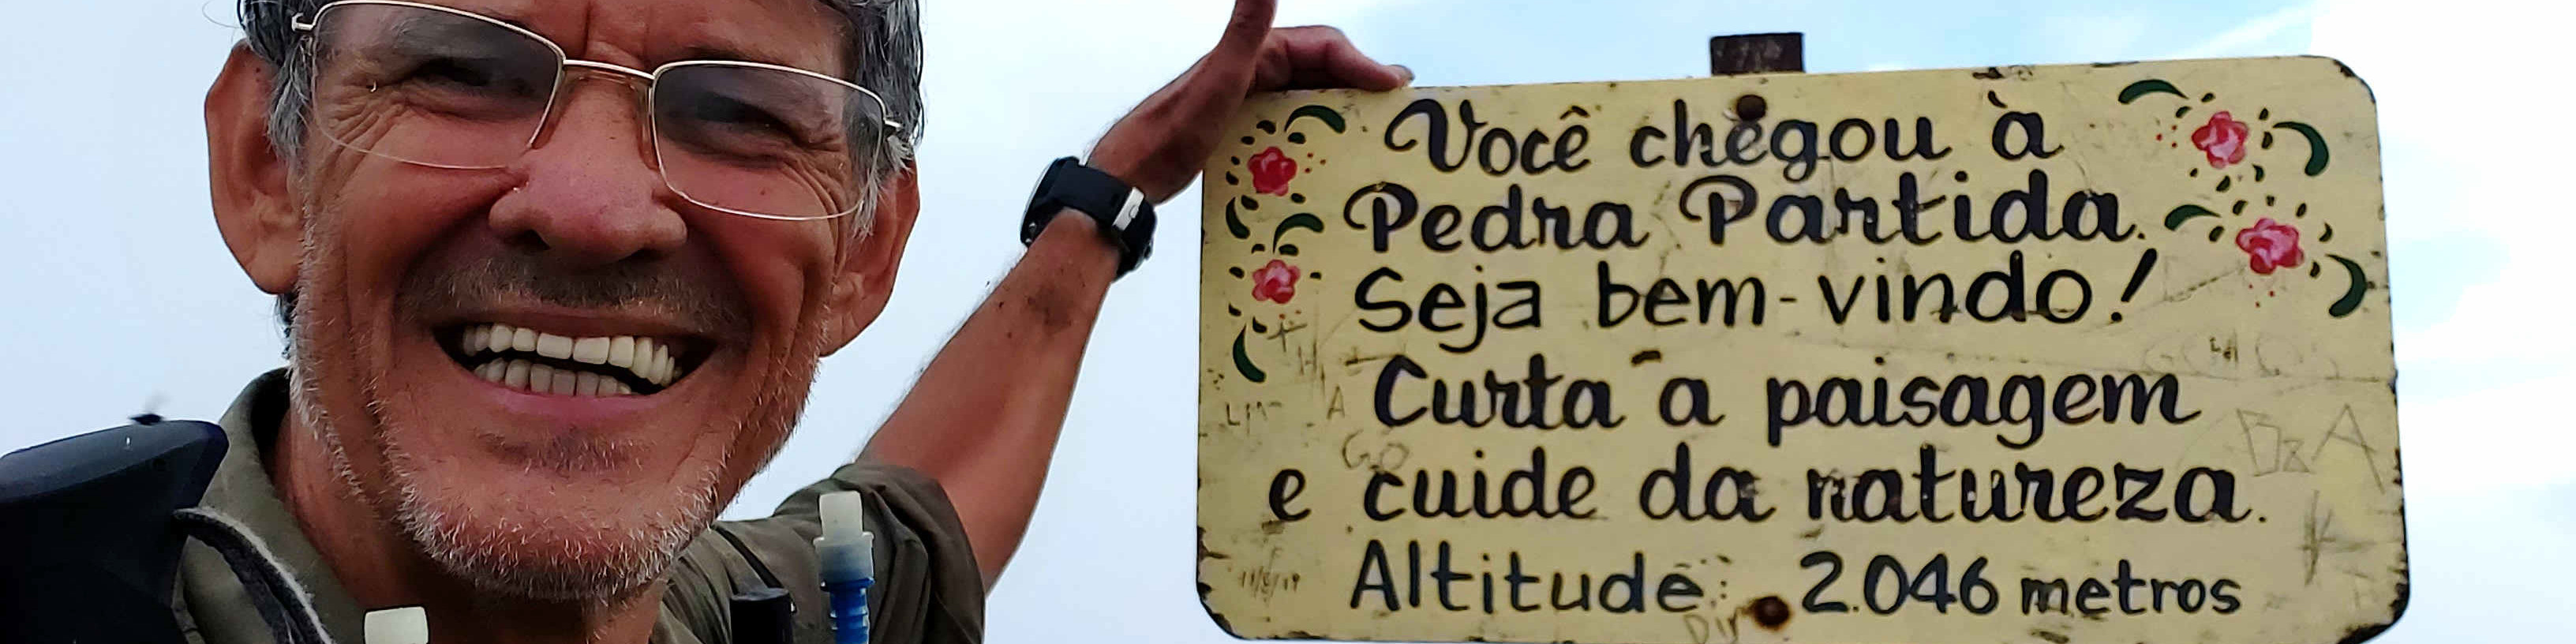 Você chegou à
Pedra Partida.
Seja bem-vindo!
Curta a paisagem
e cuide da natureza.
Altitude: 2.046 metros